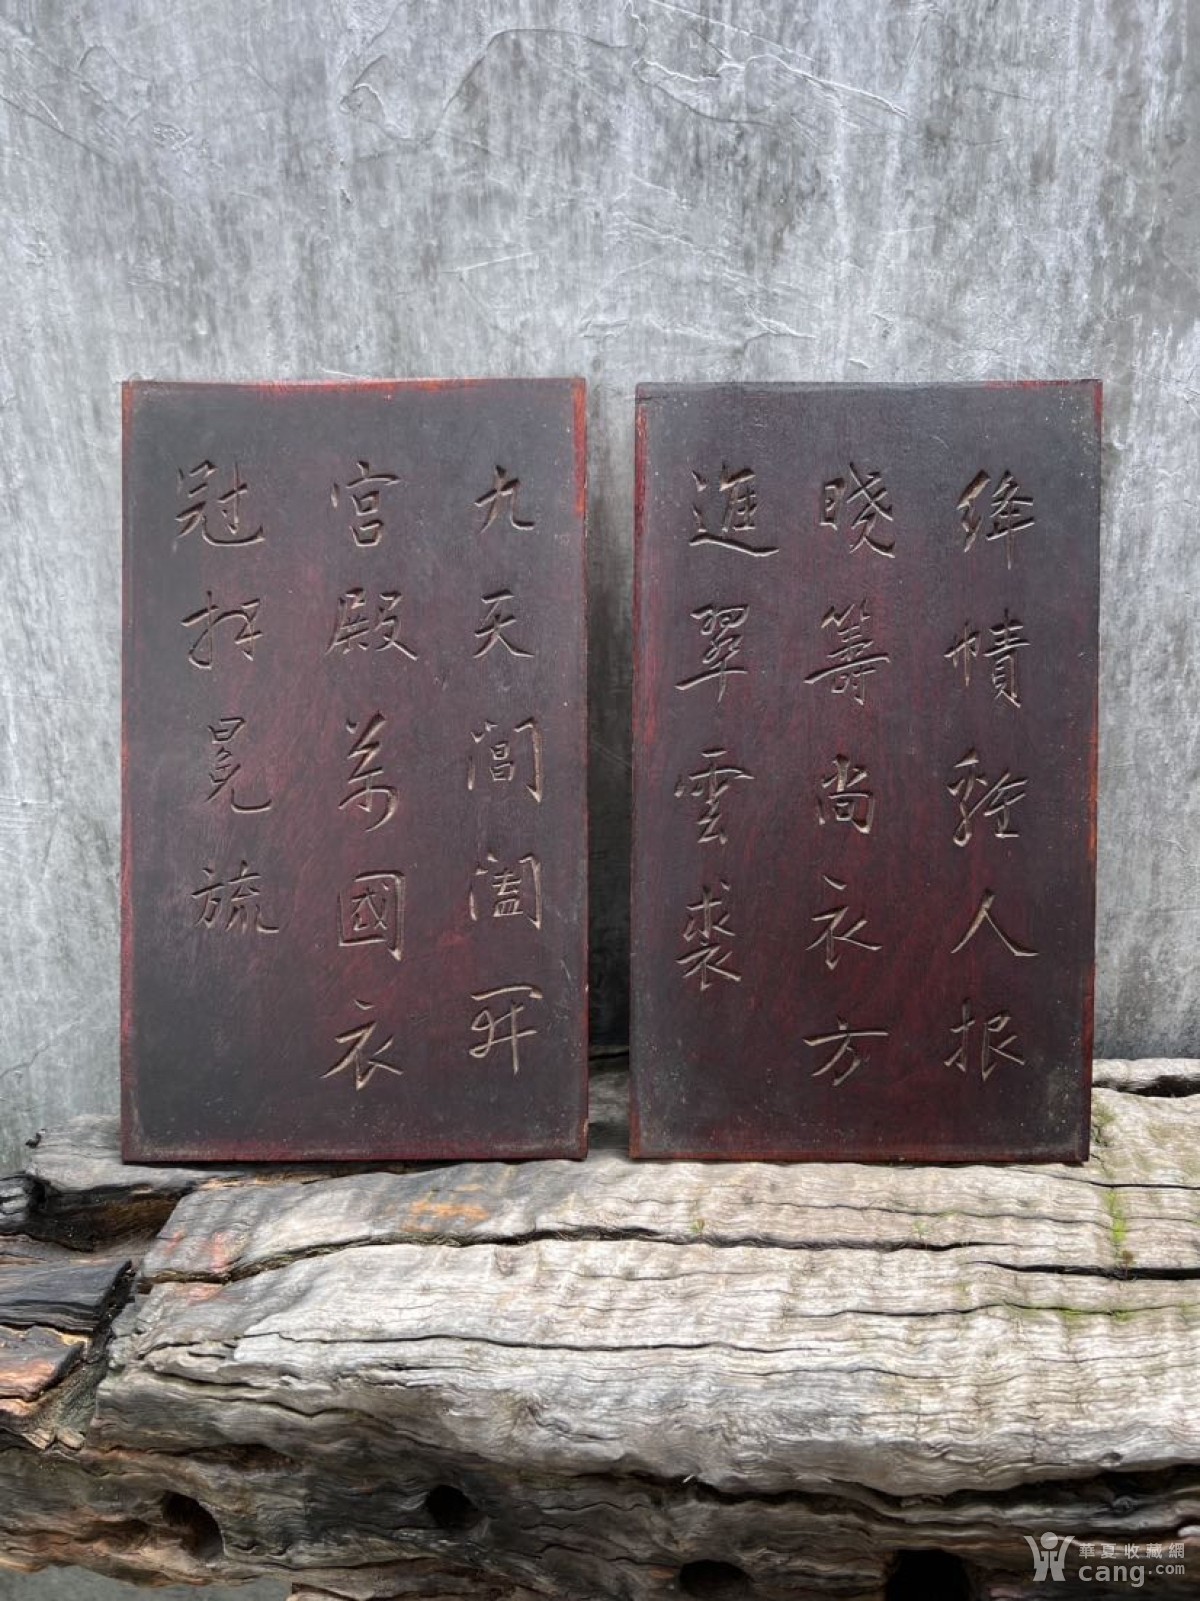 絳幘雞人報
曉籌尚衣方
進翠雲裘
九天閶闔開
宮殿萬國衣
冠拜冕旒
華夏收藏網
cang.com